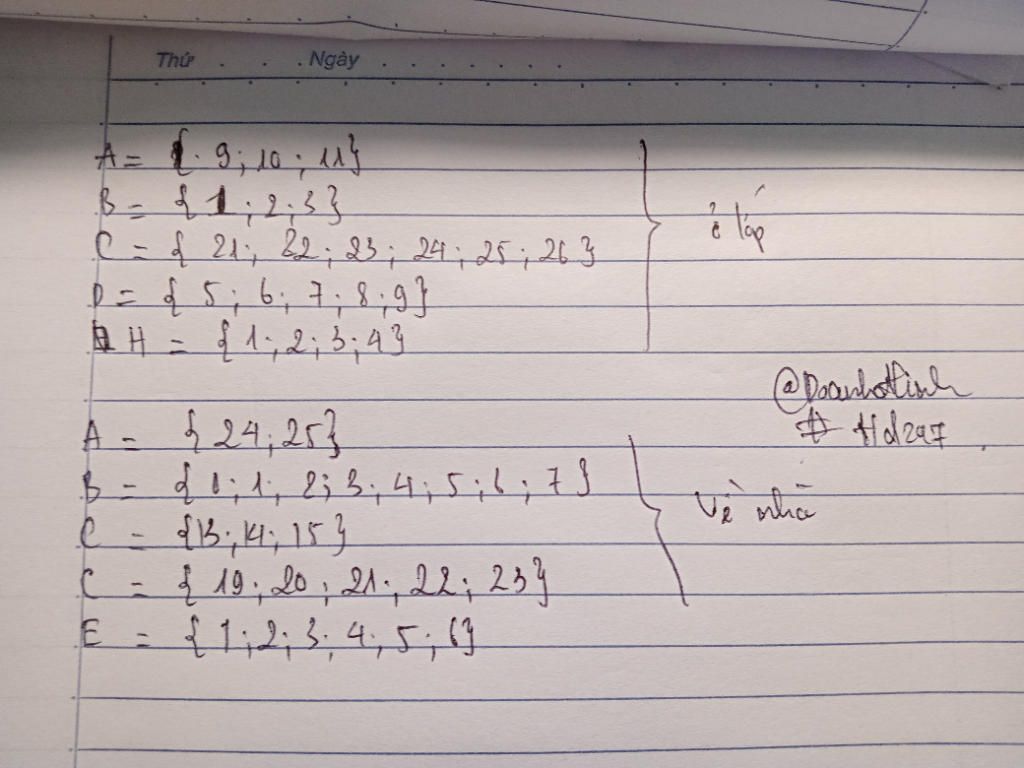 Thứ . . . Ngày . . . . . . .
A = { 9; 10; 11}
B = { 1; 2; 3}
C = { 21; 22; 23; 24; 25; 26 }
D = { 5; 6; 7; 8; 9}
H = { 1; 2; 3; 4}
ở lớp
A = { 24; 25}
B = { 0; 1; 2; 3; 4; 5; 6; 7 }
C = {13; 14; 15}
C = { 19; 20; 21; 22; 23}
E = { 1; 2; 3; 4; 5; 6}
Về nhà